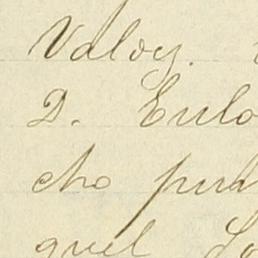 Valoy.
D. Eulo
cho pun
quel Lo